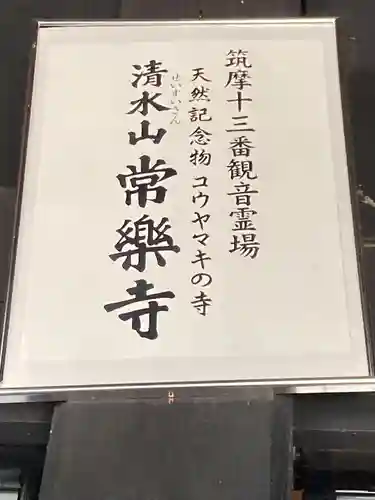 筑摩十三番観音霊場
天然記念物 コウヤマキの寺
せいすいさん
清水山 常樂寺